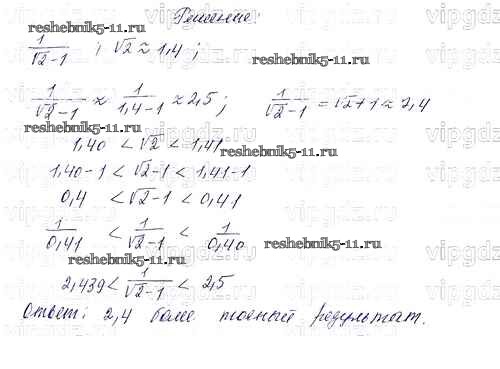 Решение:
reshebnik5-11.ru
1/(√2-1) ; √2 ≈ 1,4 ;
reshebnik5-11.ru
1/(√2-1) ≈ 1/(1,4-1) ≈ 2,5 ; 1/(√2-1) = √2+1 ≈ 2,4
reshebnik5-11.ru
1,40 < √2 < 1,41
reshebnik5-11.ru
1,40-1 < √2-1 < 1,41-1
0,4 < √2-1 < 0,41
1/0,41 < 1/(√2-1) < 1/0,40
reshebnik5-11.ru
reshebnik5-11.ru
2,439 < 1/(√2-1) < 2,5
Ответ: 2,4 более точный результат.